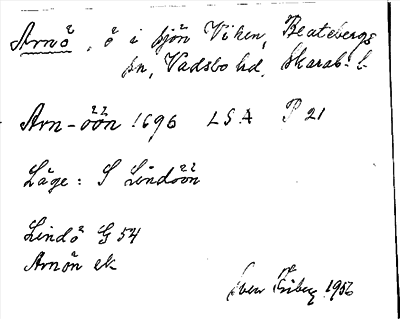 Arnö, ö i sjön Viken, Beatebergs
sn, Vadsbo hd, Skarab. l.
Arn-öön 1696 LSA P 21
Läge: S Lindöön
Lindö G 54
Arnön ek
Sven Friberg 1956